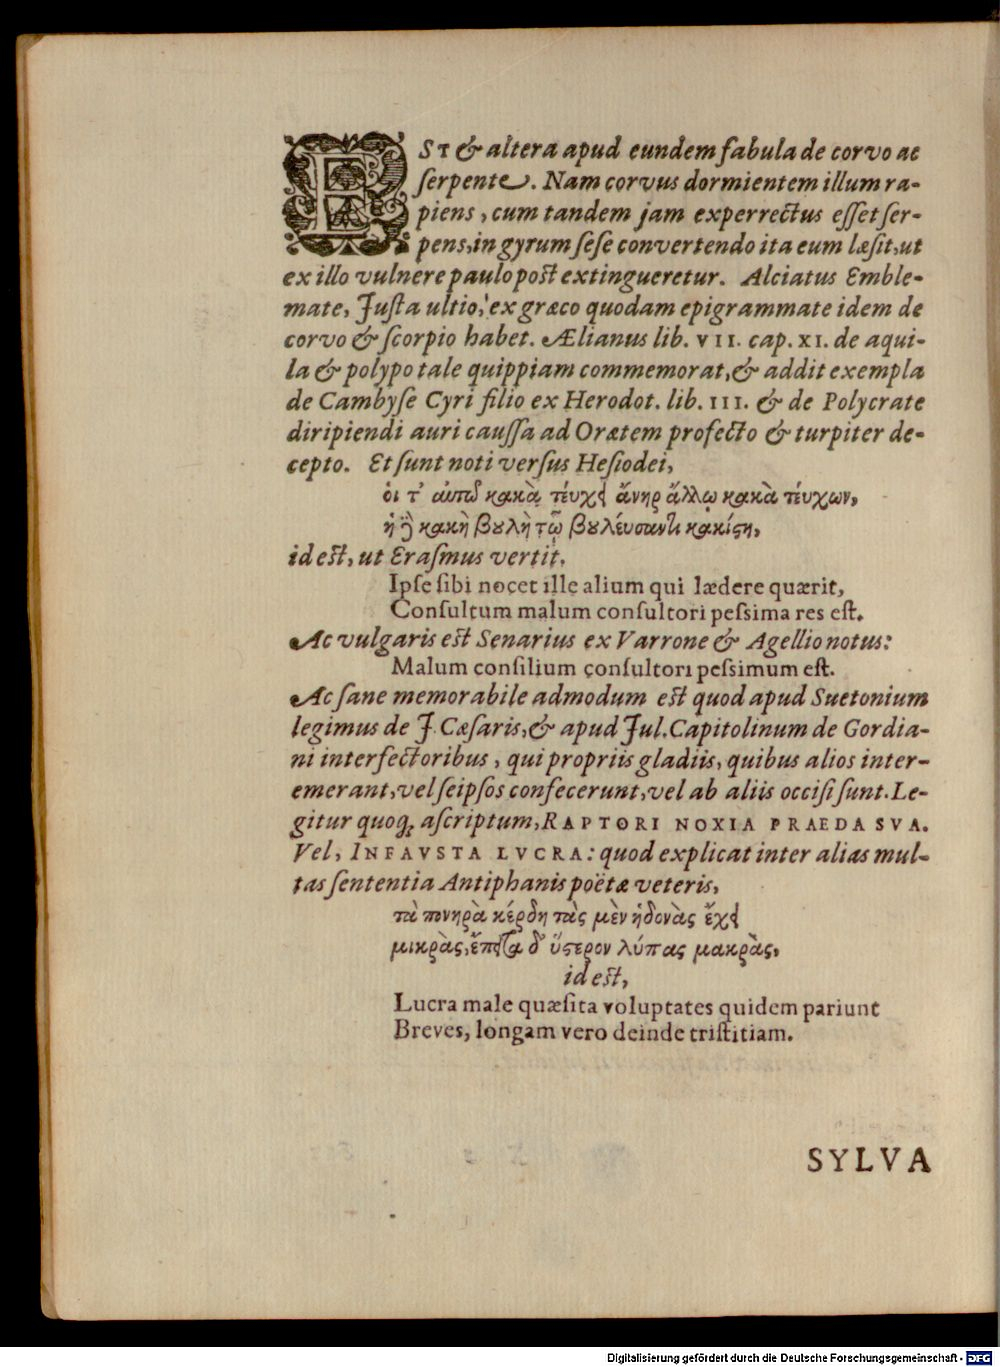 EST & altera apud eundem fabula de corvo ac
serpente. Nam corvus dormientem illum ra-
piens, cum tandem jam experrectus esset ser-
pens, in gyrum sese convertendo ita eum læsit, ut
ex illo vulnere paulo post extingueretur. Alciatus Emble-
mate, Justa ultio, ex græco quodam epigrammate idem de
corvo & scorpio habet. Ælianus lib. VII. cap. XI. de aqui-
la & polypo tale quippiam commemorat, & addit exempla
de Cambyse Cyri filio ex Herodot. lib. III. & de Polycrate
diripiendi auri caussa ad Orætem profecto & turpiter de-
cepto. Et sunt noti versus Hesiodei,
οἱ τ' αὐτῷ κακὰ τέυχει ἄνηρ ἄλλῳ κακὰ τέυχων,
ἡ δὲ κακὴ βουλὴ τῷ βουλέυσαντι κακίστη,
id est, ut Erasmus vertit,
Ipse sibi nocet ille alium qui lædere quærit,
Consultum malum consultori pessima res est.
Ac vulgaris est Senarius ex Varrone & Agellio notus:
Malum consilium consultori pessimum est.
Ac sane memorabile admodum est quod apud Suetonium
legimus de J. Cæsaris, & apud Jul. Capitolinum de Gordia-
ni interfectoribus, qui propriis gladiis, quibus alios inter-
emerant, vel seipsos confecerunt, vel ab aliis occisi sunt. Le-
gitur quoq; ascriptum, RAPTORI NOXIA PRAEDA SVA.
Vel, INFAVSTA LVCRA: quod explicat inter alias mul-
tas sententia Antiphanis poëtæ veteris,
τὰ πονηρὰ κέρδη τὰς μὲν ἡδονὰς ἔχει
μικρὰς, ἔπειτα δ' ὕστερον λύπας μακρὰς,
id est,
Lucra male quæsita voluptates quidem pariunt
Breves, longam vero deinde tristitiam.
SYLVA
Digitalisierung gefördert durch die Deutsche Forschungsgemeinschaft - DFG